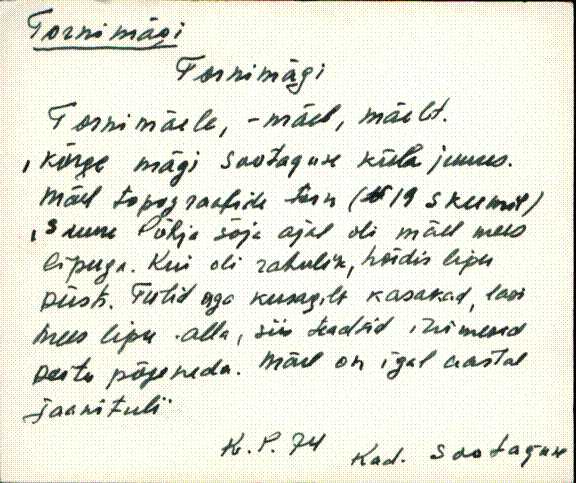 Tornimägi
Tornimägi
Tornimäele, -mäel, mäelt.
, kõrge mägi Sootaguse küla juures.
Mäel topograafide torn (19 skeemil)
, Suure Põhja sõja ajal oli mäel mees
lipuga. Kui oli rahulik, hoidis lipu
püsti. Tulid aga kusagilt kasakad, lasi
mees lipu alla, siis teadsid inimesed
peitu põgeneda. Mäel on igal aastal
jaanituli
K. P. 74 Kad. Sootaguse